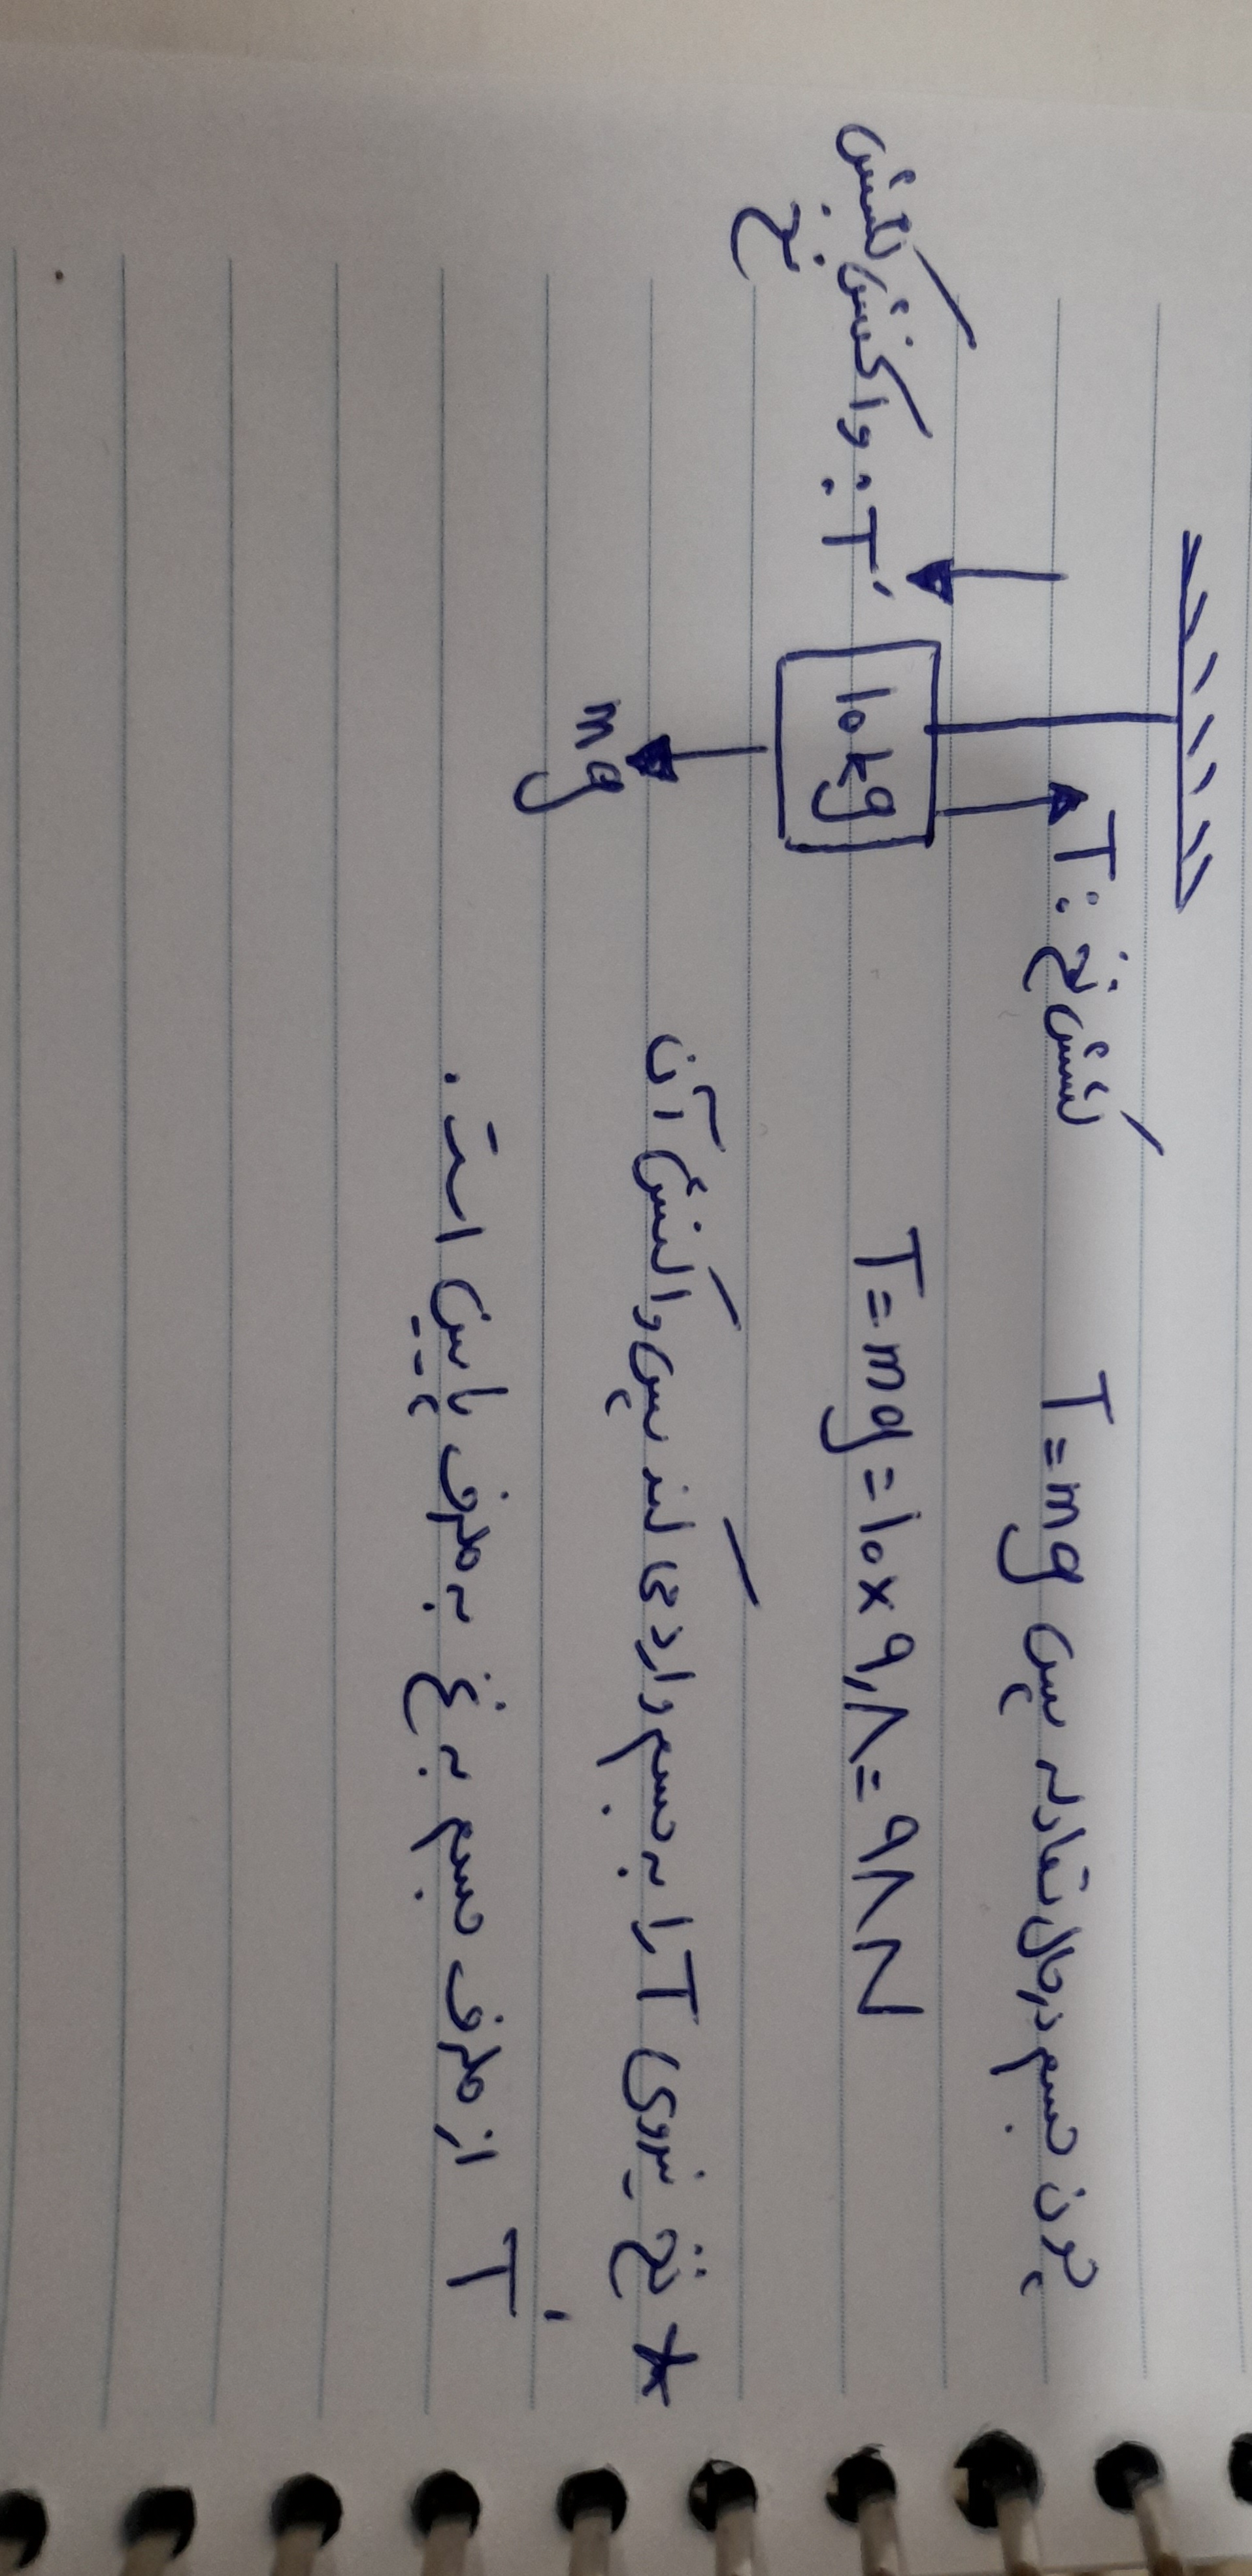 T: کشش نخ
T′: واکنش کشش نخ
10kg
mg
چون جسم در حال تعادله پس T=mg
T=mg=10×9,8=98N
* نخ نیروی T را به جسم وارد می کند پس واکنش آن
T′ از طرف جسم به نخ به طرف پایین است.